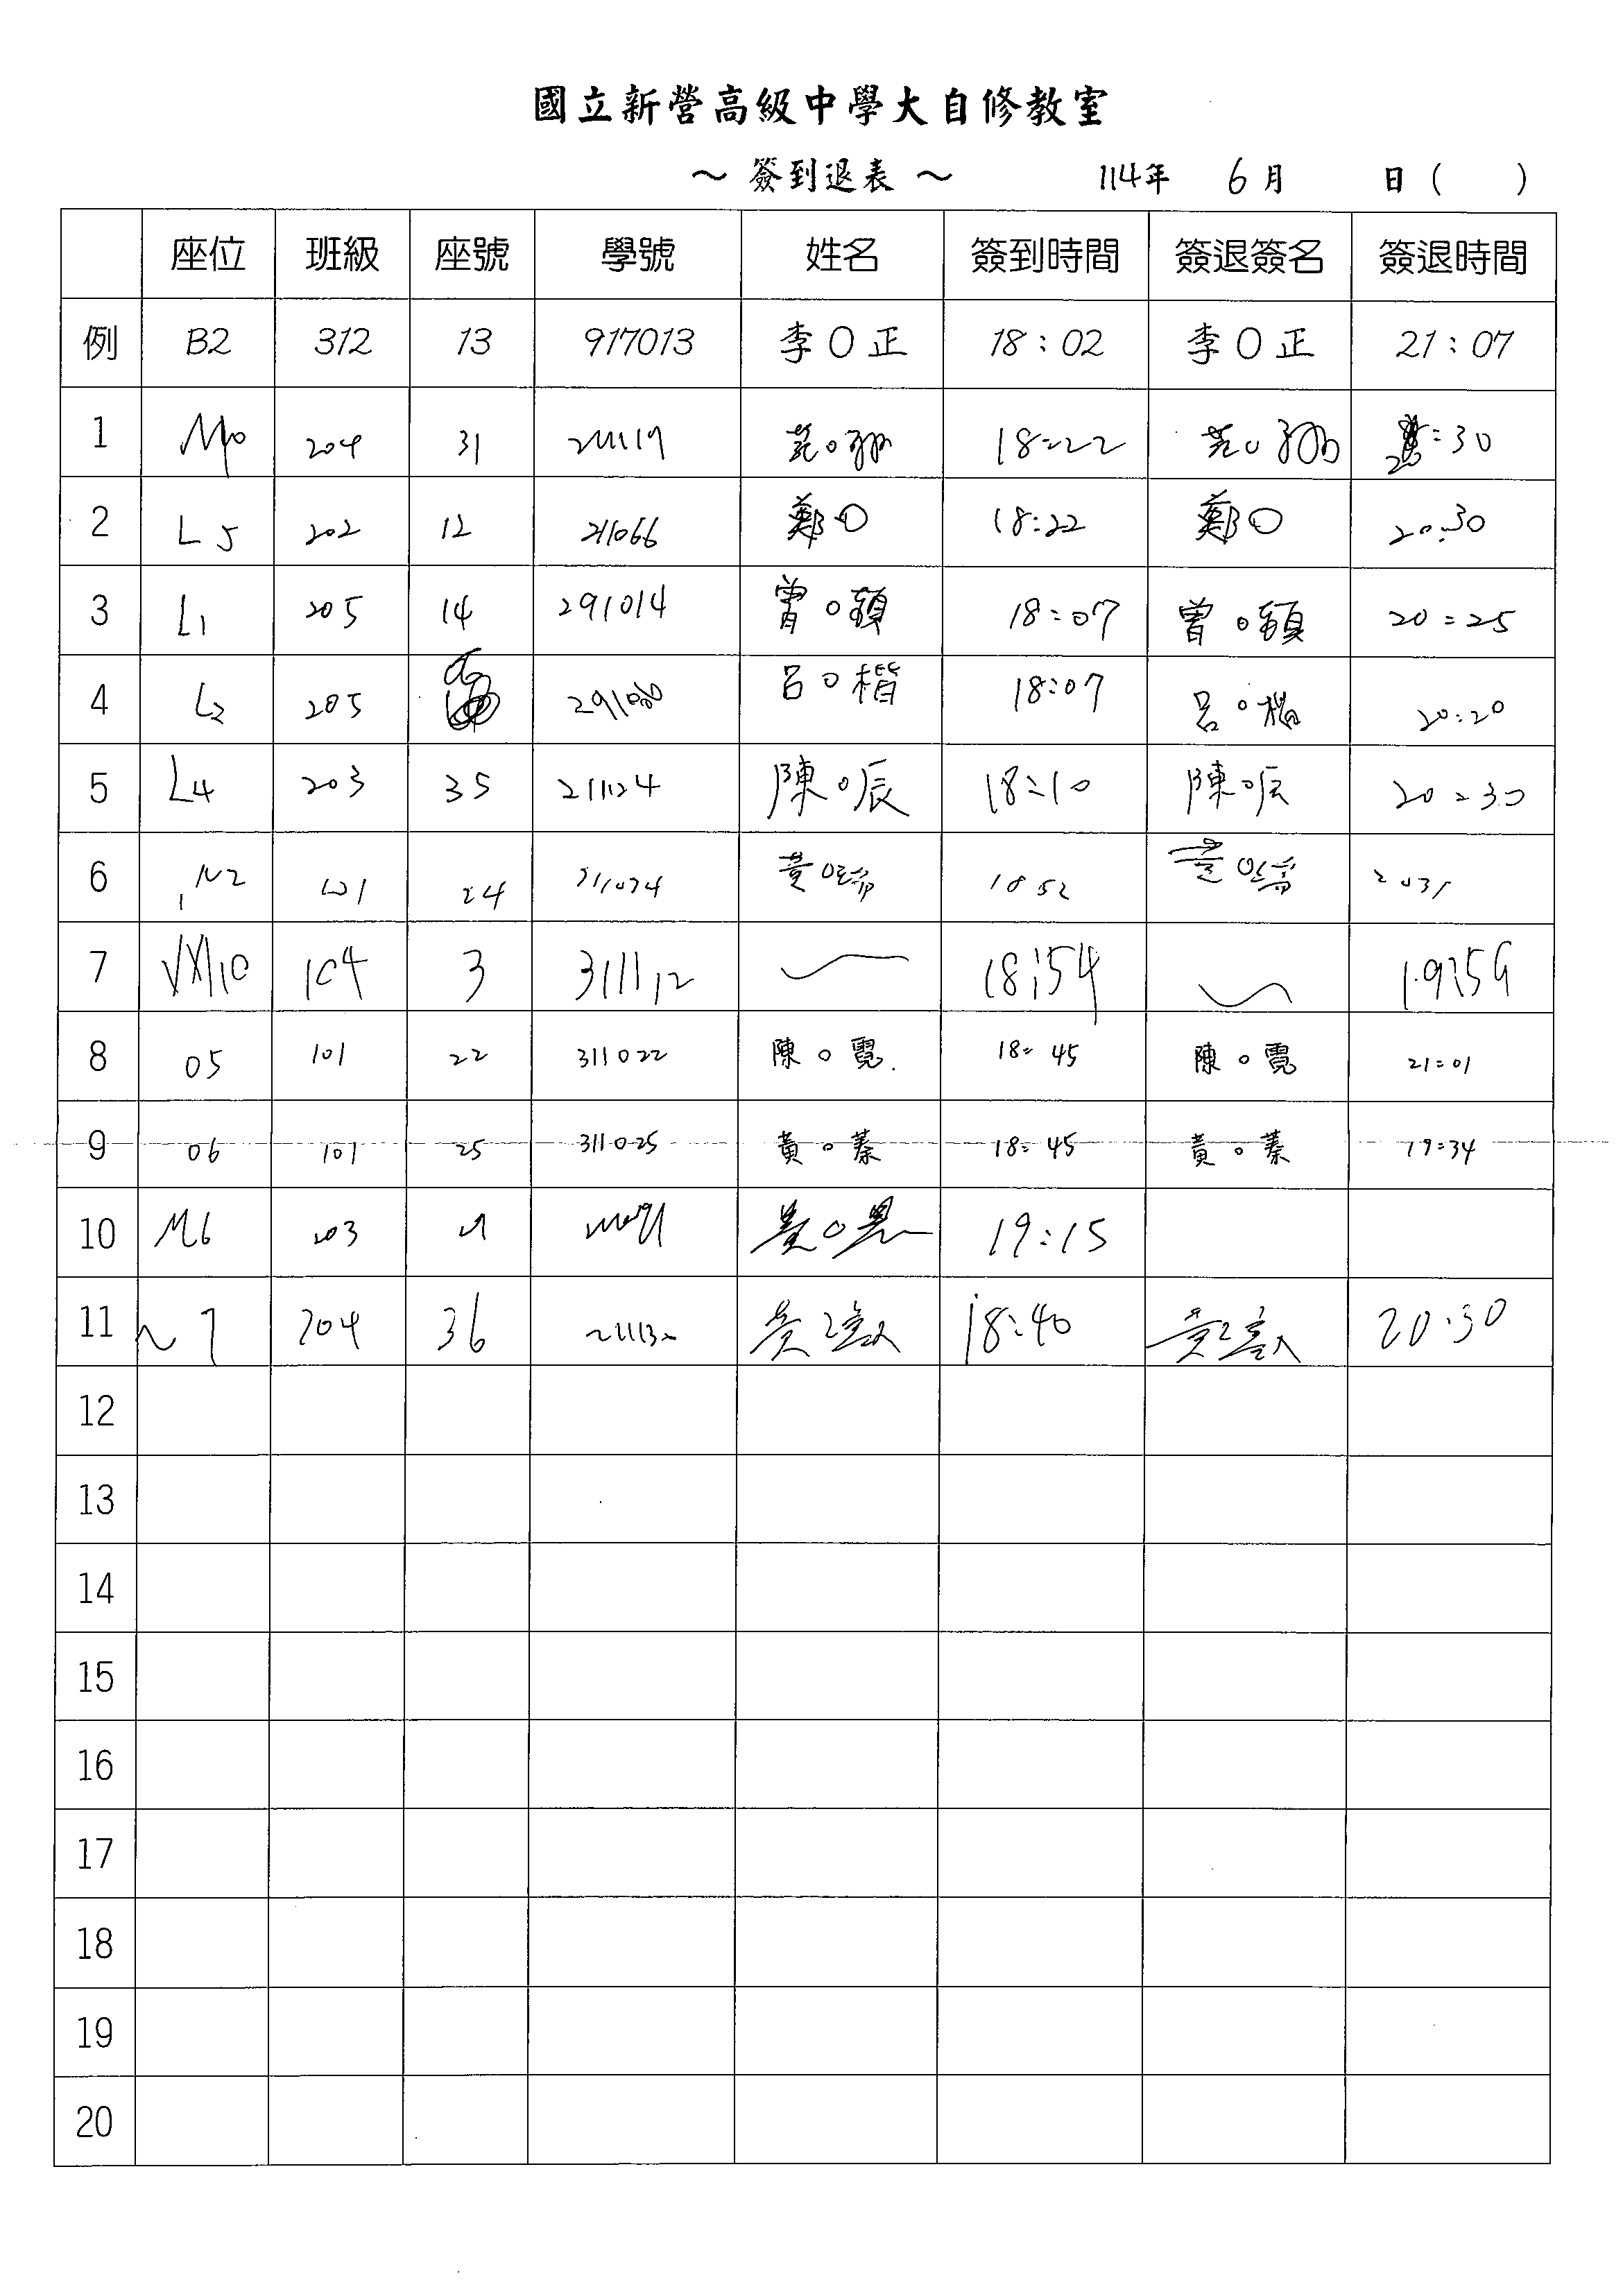 國立新營高級中學大自修教室
～ 簽到退表 ～ 114年 6月 日 ( )
座位 班級 座號 學號 姓名 簽到時間 簽退簽名 簽退時間
例 B2 312 13 917013 李O正 18:02 李O正 21:07
1 204 31 211119 18:22 :30
2 L5 202 12 211066 鄭O 18:22 鄭O 20:30
3 L1 205 14 291014 曾O額 18:07 曾O額 20:25
4 L2 205 呂O楷 18:07 呂O楷 20:20
5 L4 203 35 211124 陳O辰 18:10 陳O辰 20:30
6 N2 24 黃O 18 52
7 104 3 311112 18:54 19:59
8 05 101 22 311022 陳O霓 18:45 陳O霓 21:01
9 06 101 25 311025 黃O蓁 18:45 黃O蓁 19:34
10 M6 203 19:15
11 204 36 18:40 20:30
12
13
14
15
16
17
18
19
20